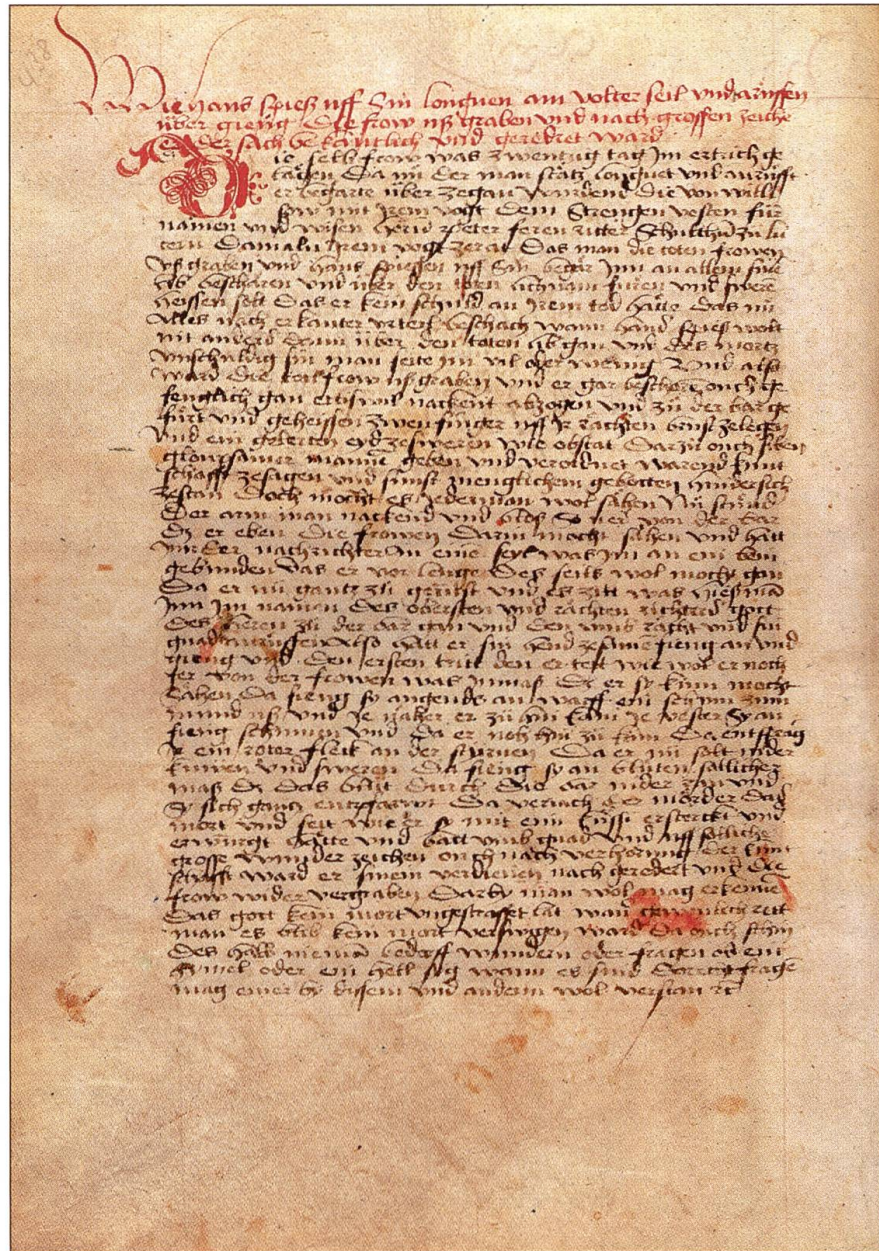 Wie hans spieß uff Sin lougnen am volter seil und arüffen
über gieng Die frow uß graben und nach grossen zeiche
der sach bekantlich und geredret ward
Die selb frow was zwentzig tag jm ertrich ge
lägen Da nü der man stätz lougnet und anrüfft
er begärte über ze gan wurdend die von willi
sow mit jrem vogt dem Strengen vesten für
namen und wisen herrn peter feren ritter Schultheis zu lu
tern Damaln jrem vogt ze rat Das man die toten frowen
uß graben und hans spiessen uff Sin begär jm an allem
beschären und über den toten lichnam füren und sweren
heissen sölt Das er kein schuld an jrem tod hätte das nü
Alles nach erkanter urteil beschach wann hans spieß wolt
nit anders dann über den toten lib gan und des mortz
unschuldig sin man seite jm vil oder wenig Und also
ward die frow uß graben und er gar beschorn ouch ge
fenglich gan ertiswil nackent abzogen und zü der bar ge
fürt und geheissen zwen finger uff jr rächten brust zelegen
und ein gelerten eyd ze sweren wie obstat Dar zü ouch siben
gloubsamer manne geben und verordnet warend kunt
schafft ze sagen und sunst menglichem gebotten hindersich
ze stan Doch mocht es jederman wol sähen Nu stünd
Der arm man nackend und blos So ver von der bar
Dz er eben die frowen Darin mocht sähen und hatt
jm der nachrichter An eine seyl was jm an ein bein
gebunden das er vor lenge Des seils wol mocht gan
Da er nü gantz zü gerüst und es zitt was hieß man
jnn jm namen des obersten und rächten richters gott
des herren zü der bar gan und den umb rächt und sin
gnad anrüffen Also hatt er sin hend zesame fieng an und
gieng und den ersten tritt den er tett wie wol er noch
fer von der frowen was jnmaß Dz er sy kum mocht
sähen Da fieng sy angends an warff ein schum zum
mund uß und je näher er zü hin kam je vester Sy an
fieng schumen und da er noh hin zü kam Da entsprang
jr ein roter fleck an der styrnen Da er nü solt nider
knüwen und sweren Da fieng sy an blüten söllicher
maß Dz Das blüt durch die bar nider ran und
Sy sich gantz entpfarwt Da verjach der mörder das
mort und seit wie er sy mit ein küssi ersteckt und
erwürgt hätte und batt umb gnad und uff sölliche
grosse wunder zeichen ouch nach verhörung der kunt
schafft ward er sinem verdienen nach geredert und die
frow wider vergraben Darby man wol mag erkennen
Das gott kein mort ungestraffet lat wan gewonlich rett
man es blib kein mort verswigen ward Da ouch
Des halb nieman bedarff wundern oder fragen ob ein
hymel oder ein hell syg wann es sind fragen
mag einer by disem und anderm wol verstan ꝛc